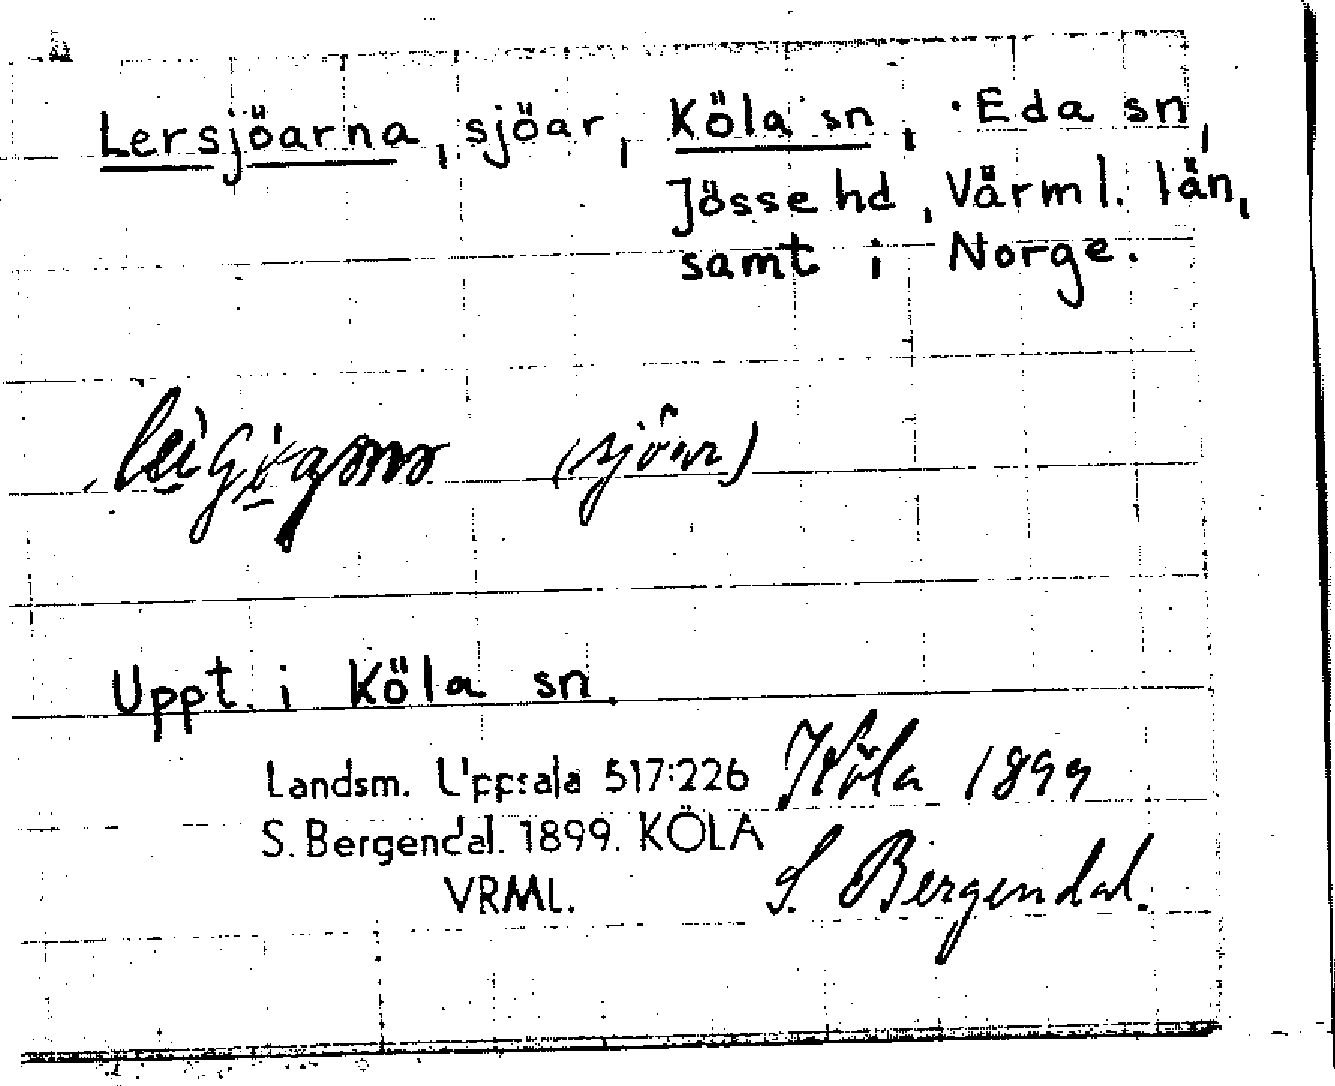 Lersjöarna, sjöar, Köla sn, Eda sn,
Jösse hd, Värml. län,
samt i Norge.
(sjöar)
Uppt. i Köla sn.
Landsm. Uppsala 517:226 Köla 1899
S. Bergendal. 1899. KÖLA
VRML.
S. Bergendal.